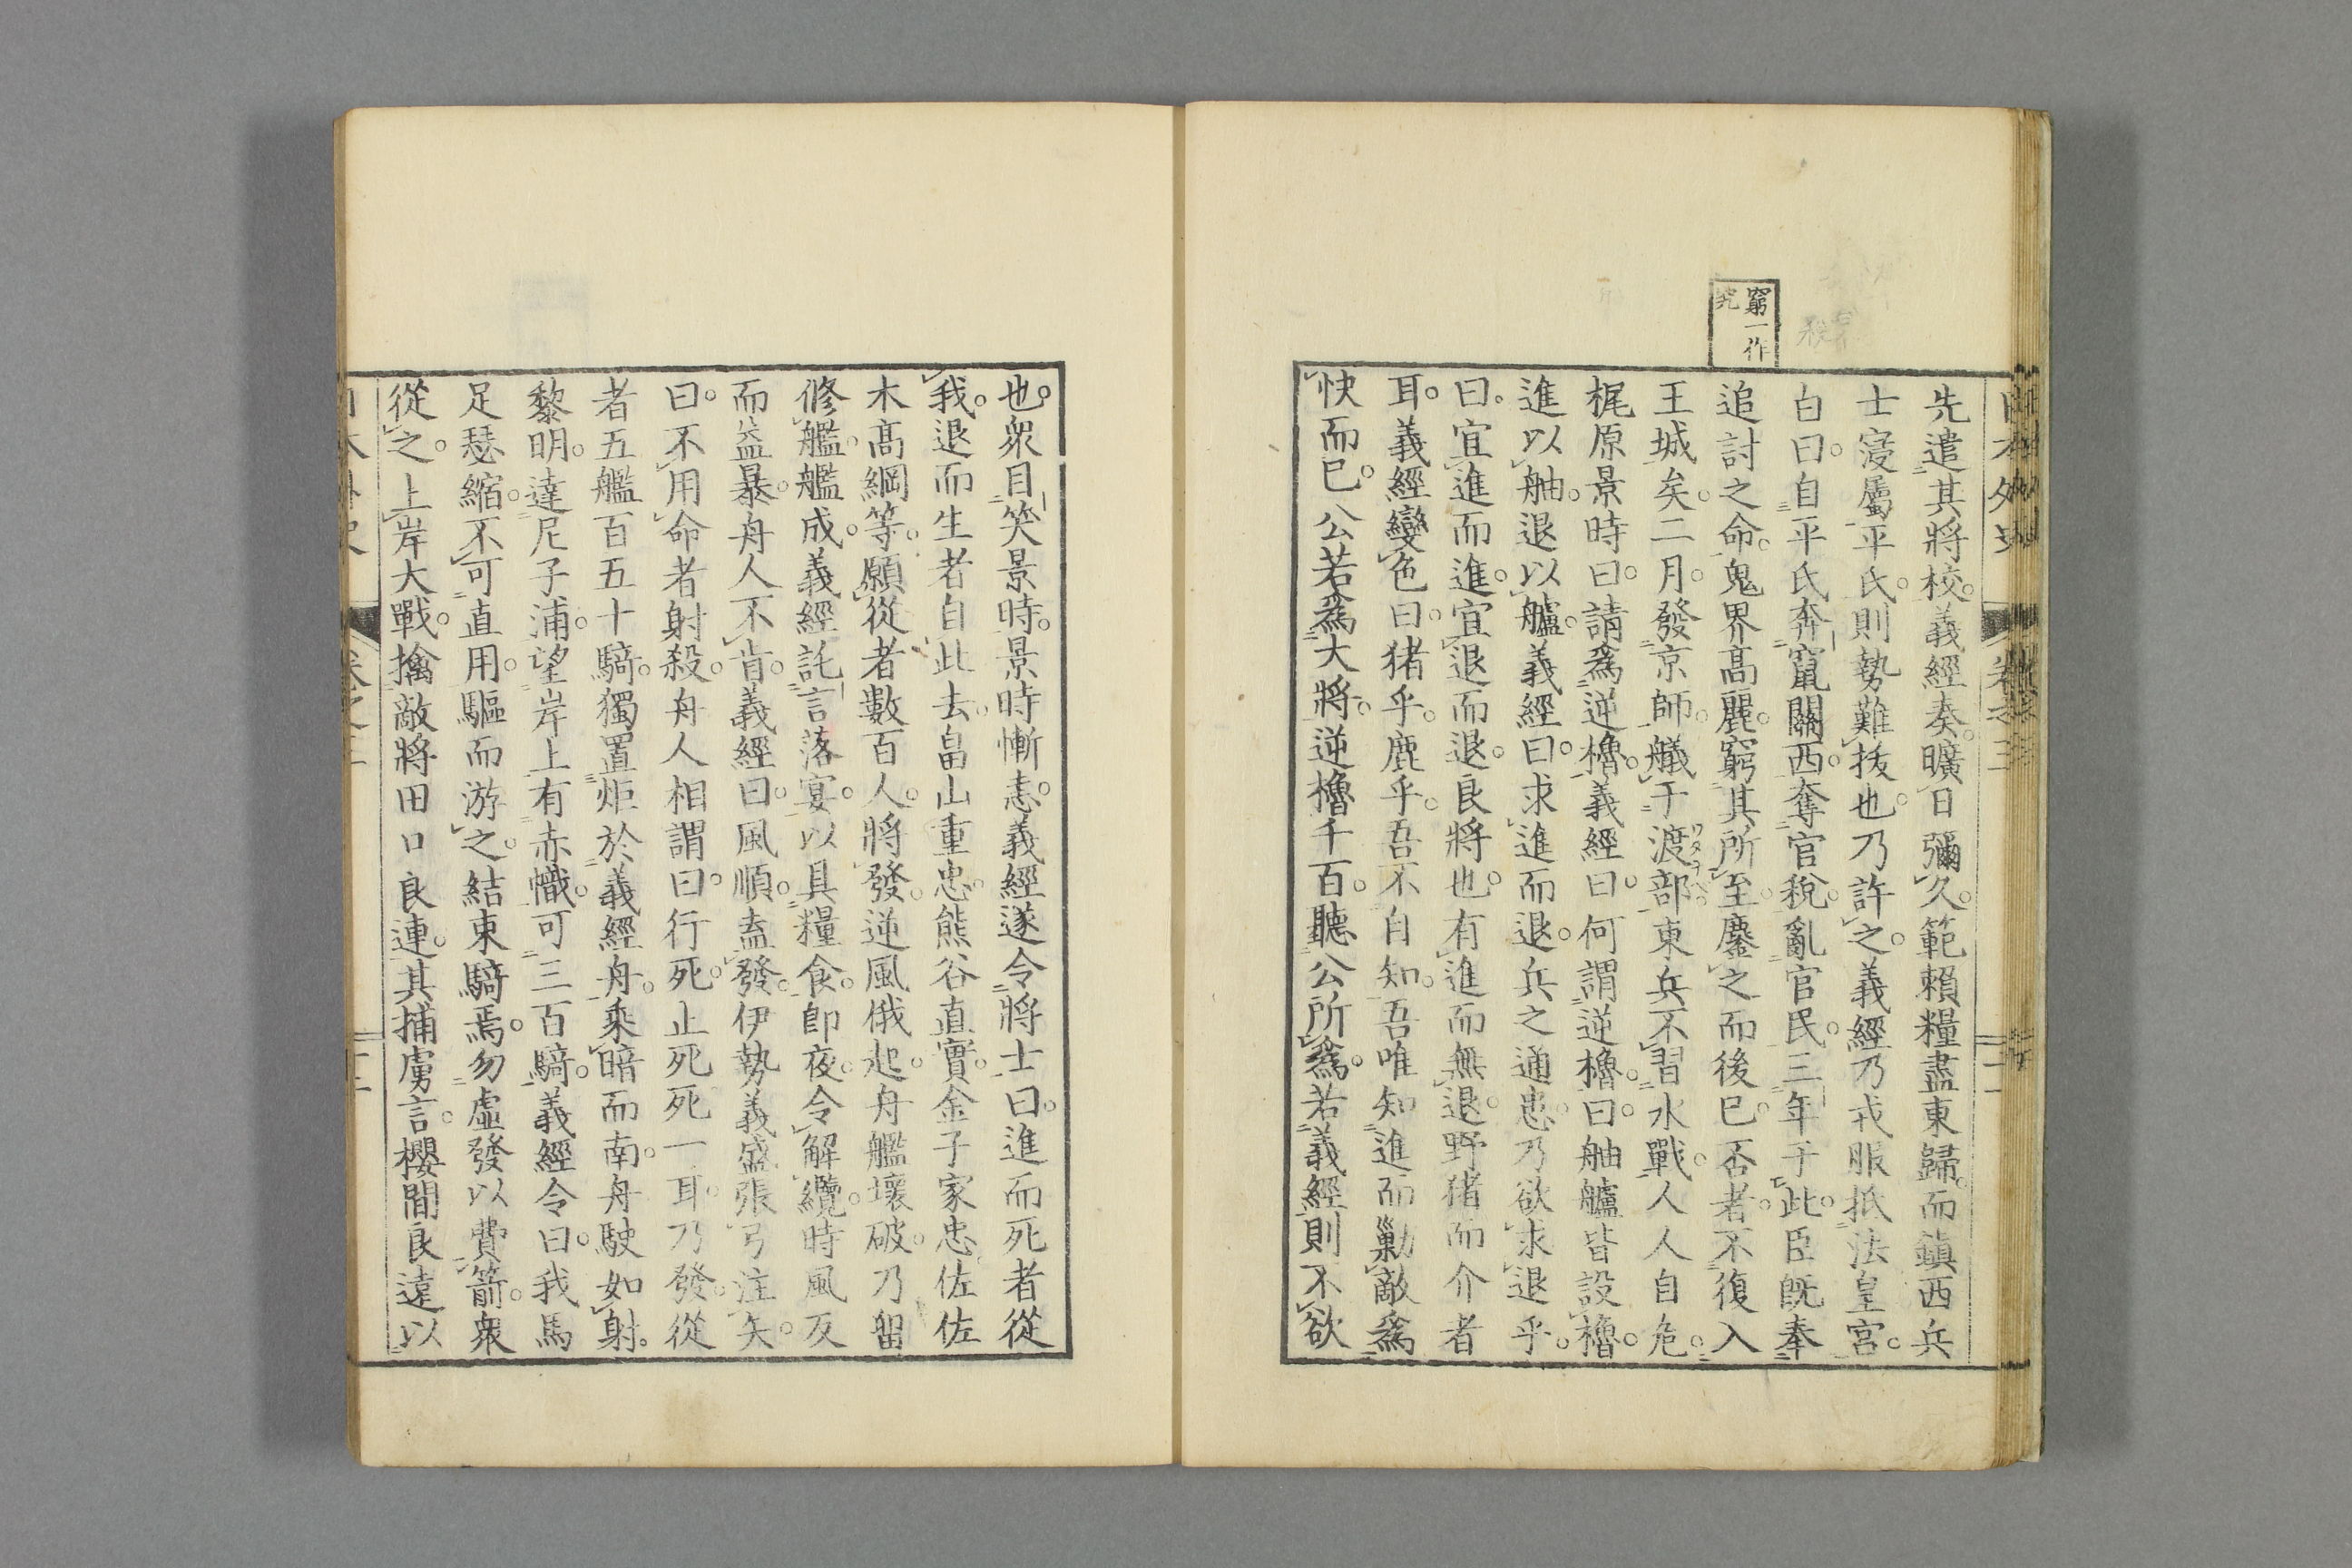 窮一作
究
先遣其將校。義經奏。曠日彌久。範賴糧盡東歸。而鎭西兵
士寖屬平氏。則勢難拔也。乃許之。義經乃戎服抵法皇宮。
白曰。自平氏奔竄關西。奪官稅。亂官民。三年于此。臣旣奉
追討之命。鬼界高麗。窮其所至。鏖之而後已。否者。不復入
王城矣。二月。發京師。艤于渡部。東兵不習水戰。人人自危。
ワタナベ
梶原景時曰。請爲逆櫓。義經曰。何謂逆櫓。曰。舳艫皆設櫓。
進以舳。退以艫。義經曰。求進而退。兵之通患。乃欲求退乎。
曰。宜進而進。宜退而退。良將也。有進而無退。野猪而介者
耳。義經變色曰。猪乎。鹿乎。吾不自知。吾唯知進而勦敵爲
快而已。公若爲大將。逆櫓千百。聽公所爲。若義經則不欲
也。衆目笑景時。景時慚恚。義經遂令將士曰。進而死者從
我。退而生者自此去。畠山重忠。熊谷直實。金子家忠。佐佐
木高綱等。願從者數百人。將發。逆風俄起。舟艦壞破。乃留
修艦。艦成。義經託言落宴。以具糧食。卽夜。令解纜。時風反
而益暴。舟人不肯。義經曰。風順。盍發。伊勢義盛張弓注矢。
曰。不用命者射殺。舟人相謂曰。行死。止死。死一耳。乃發。從
者五艦。百五十騎。獨置炬於義經舟。乘暗而南。舟駛如射。
黎明。達尼子浦。望岸上有赤幟。可三百騎。義經令曰。我馬
足瑟縮。不可直用。驅而游之。結束騎焉。勿虛發以費箭。衆
從之。上岸大戰。擒敵將田口良連。其捕虜言。櫻間良遠以